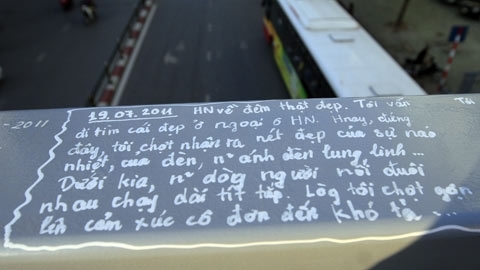 19.07.2011 HN về đêm thật đẹp. Tôi vẫn
đi tìm cái đẹp ở ngoại ô HN. Hnay, đứng
đây, tôi chợt nhận ra nét đẹp của sự náo
nhiệt, của đèn, nº ánh đèn lung linh ...
Dưới kia, nº dòg người nối đuôi
nhau chạy dài tít tắp. Lòg tôi chợt gợn
lên cảm xúc cô đơn đến khó tả ...
-2011
Tôi